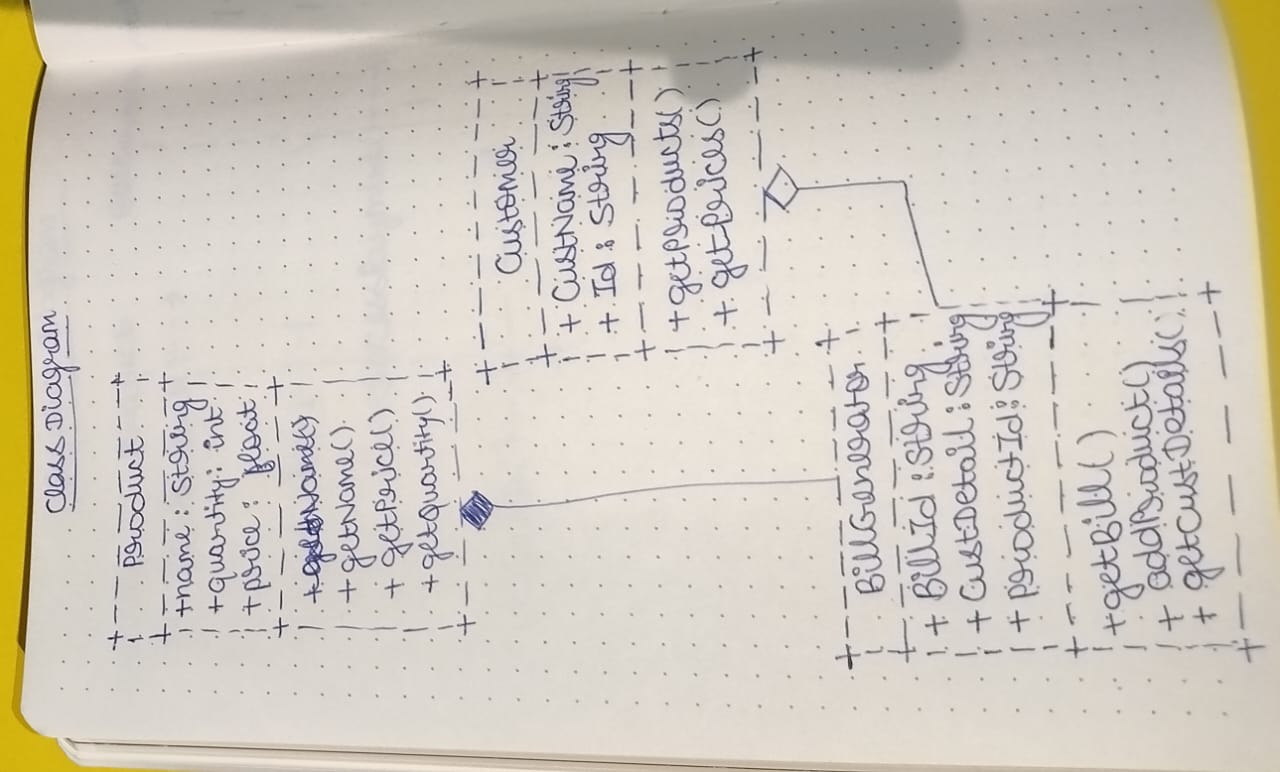 Class Diagram
Product
+name : String
+quantity : int
+price : float
+getName()
+getPrice()
+getQuantity()
Customer
+ CustName : String
+ Id : String
+getProducts()
+ getPrices()
BillGenerator
+ BillId : String
+ CustDetail : String
+ ProductId : String
+getBill()
+ addProduct()
+ getCustDetails()